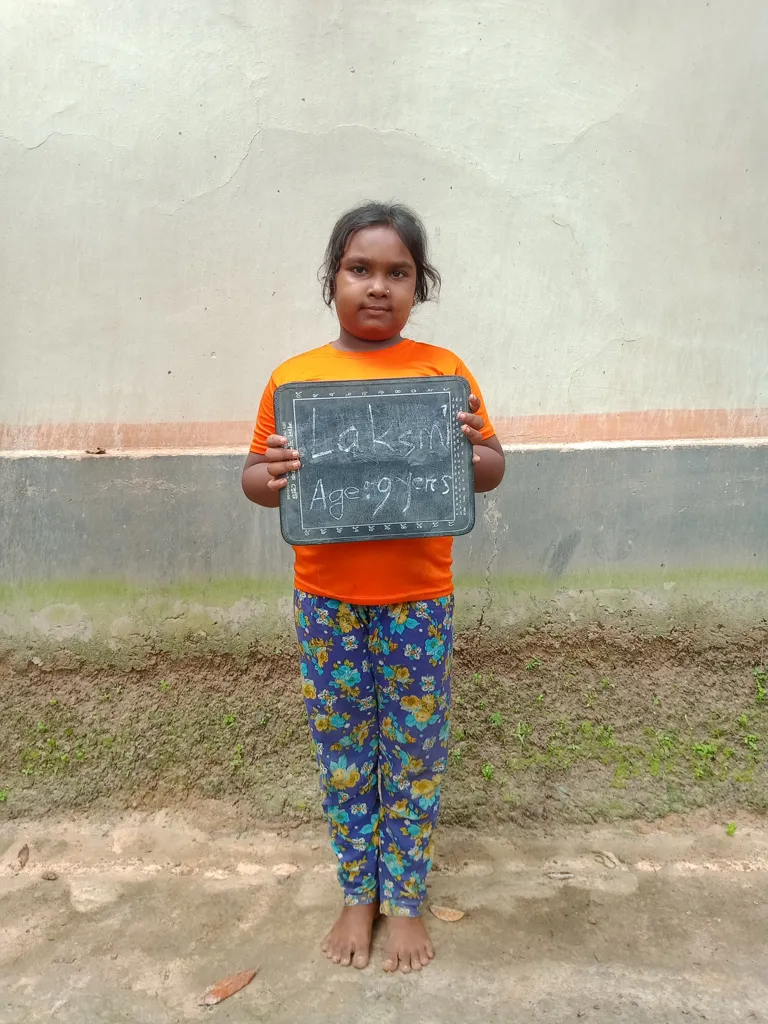 Laksmi
Age:9 yers